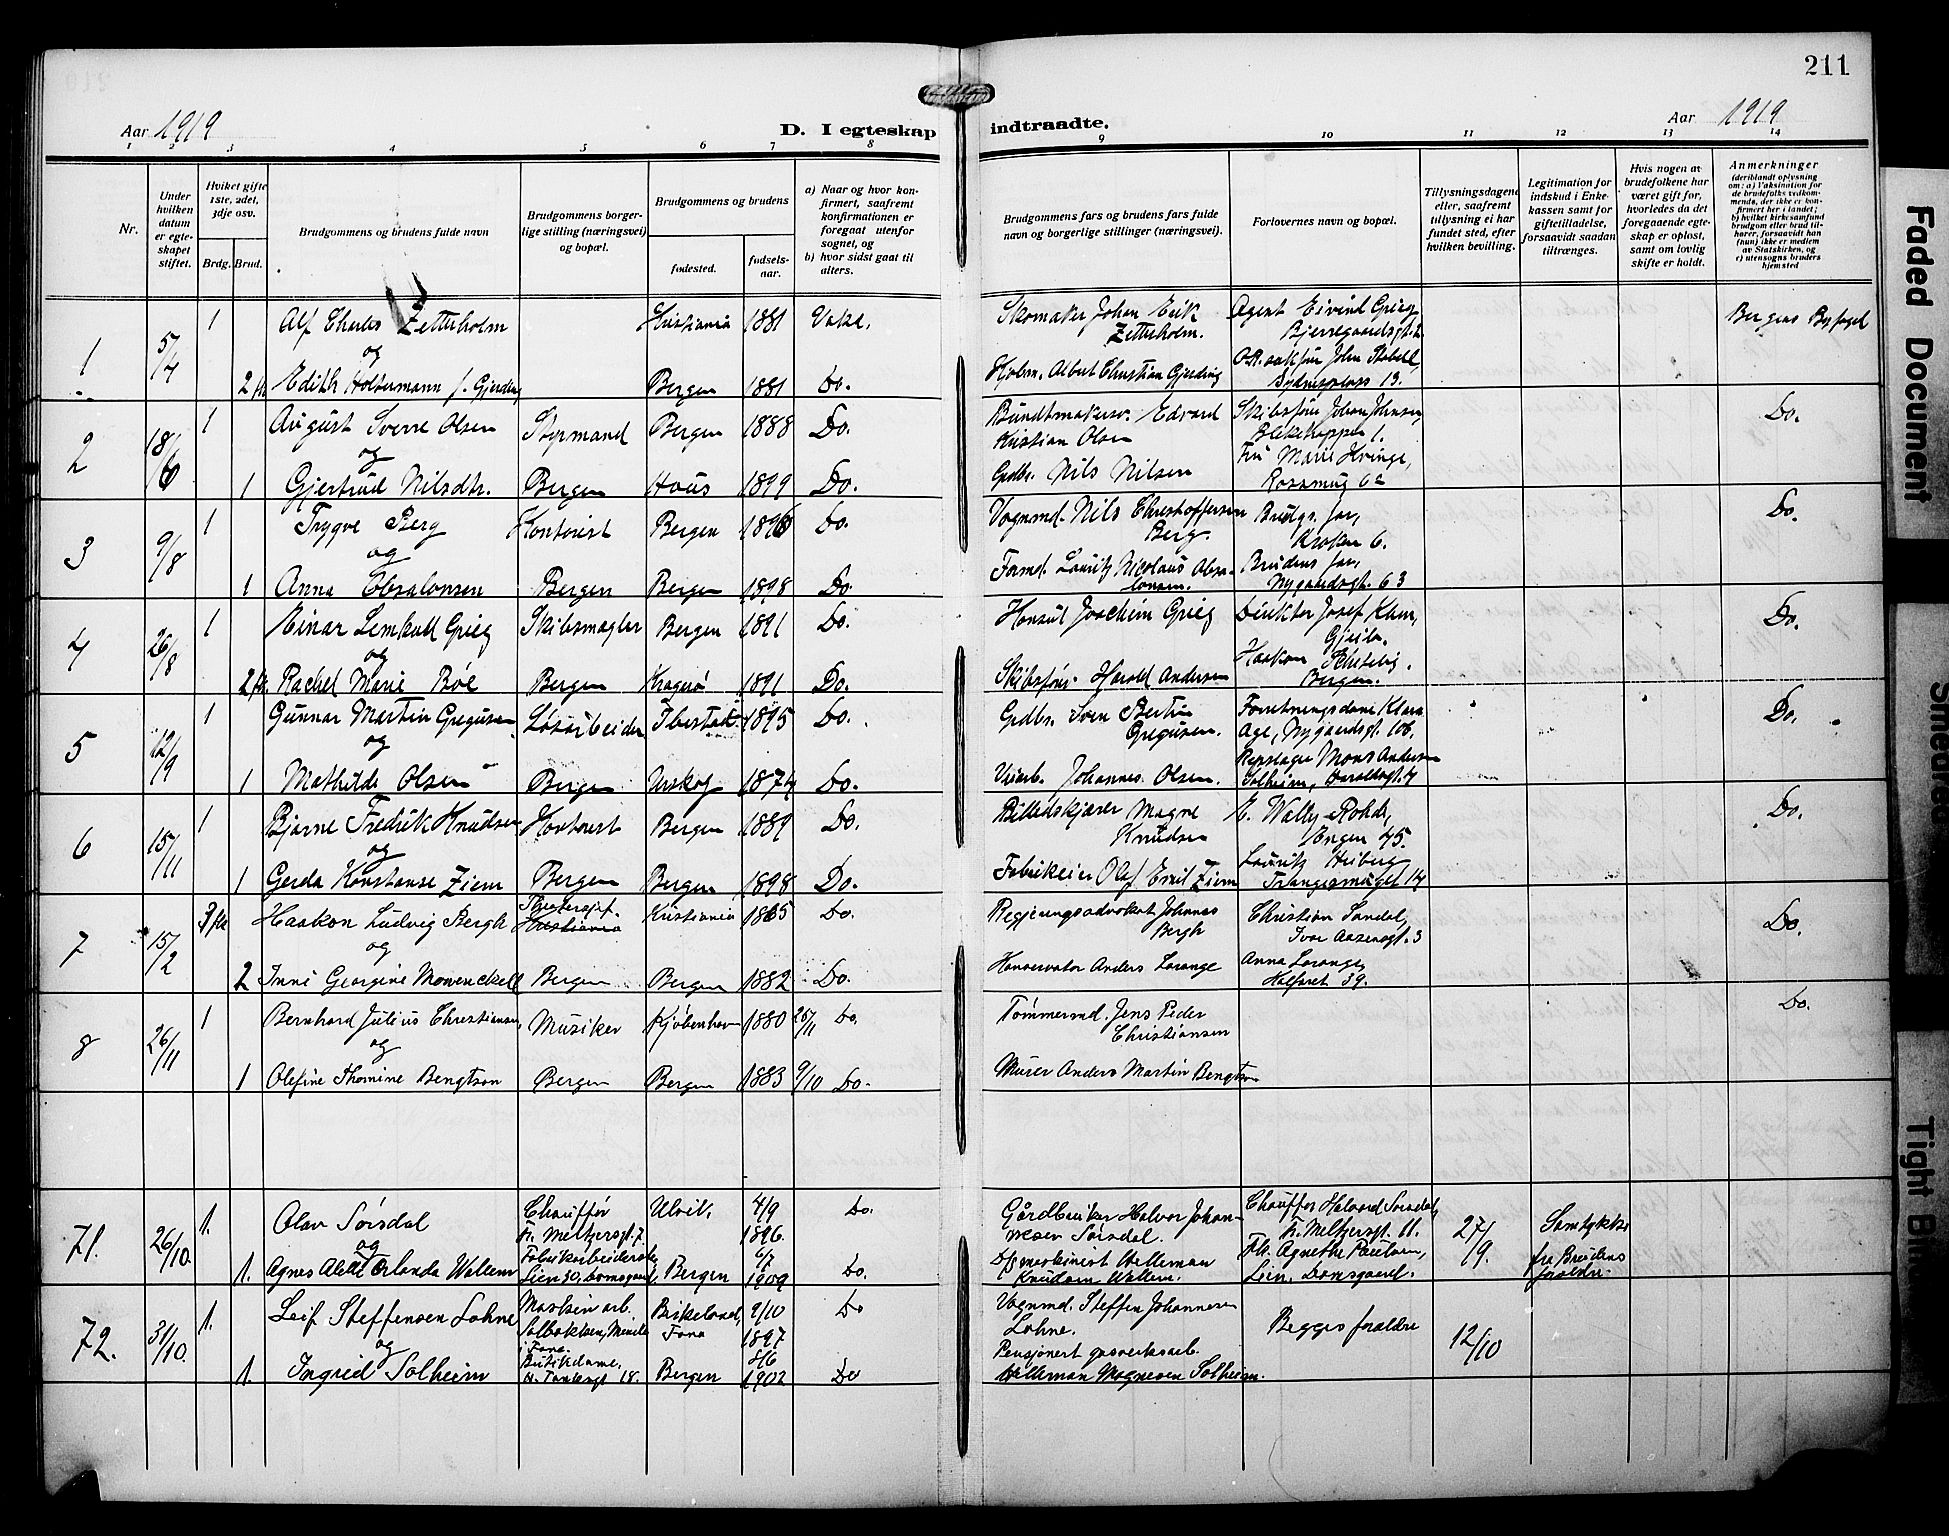 211
Aar 1919
D. I egteskap indtraadte.
Aar 1919
1 2 3 4 5 6 7 8 9 10 11 12 13 14
Nr.
Under hvilken datum er egteskapet stiftet.
Hviket gifte 1ste, 2det, 3dje osv.
Brdg. Brud.
Brudgommens og brudens fulde navn
Brudgommens borgerlige stilling (næringsvei) og bopæl.
Brudgommens og brudens
fødested.
fødselsaar.
a) Naar og hvor konfirmert, saafremt konfirmationen er foregaat utenfor sognet, og
b) hvor sidst gaat til alters.
Brudgommens fars og brudens fars fulde navn og borgerlige stillinger (næringsvei).
Forlovernes navn og bopæl.
Tillysningsdagene eller, saafremt tillysning ei har fundet sted, efter hvilken bevilling.
Legitimation for indskud i Enkekassen samt for giftetilladelse, forsaavidt saadan tiltrænges.
Hvis nogen av brudefolkene har været gift før, hvorledes da det foregaaende egteskap er opløst, samt om lovlig skifte er holdt.
Anmerkninger
(deriblandt oplysning om: a) Vaksination for de brudefolks vedkommende, der ikke er konfirmert her i landet; b) hvilket kirkesamfund brudgom eller brud tilhører, forsaavidt han (hun) ikke er medlem av Statskirken, og c) utensogns bruders hjemsted
1 5/4 1 Alf Charles Zetterholm Kristiania 1881 Skomaker Johan Erik Zetterholm. Agent Eivind Grieg Bjerregaardsgt. 2 Bergens Byfoged
og
Edith Holtermann f. Gjerding Bergen 1881 Do. Kjøbm. Albert Christian Gjerding Sydnesplass 13.
2 18/6 1 August Sverre Olsen Styrmand Bergen 1888 Do. Bundtmakersv. Edvard Kristian Olsen Skibsfører Johan Johnsen, Do.
og
1 Gjertrud Nilsdtr. Bergen Hous 1899 Do. Grdbr. Nils Nilsen Fru Marie Kvinge,
3 9/8 1 Trygve Berg Kontorist Bergen Do. Vognmd. Nils Christoffersen Berg Brudgs. far, Kroken 6. Do.
og
1 Anna Absalonsen Bergen Bergen 1898 Do. Formd. Lauritz Nicolaus Absalonsen. Brudens far, Nygaardsgt. 63
4 26/8 1 Einar Lemkuhl Grieg Skibsmægler Bergen 1891 Do. Konsul Joachim Grieg Direktør Josef Do.
og
Rachel Marie Bøe Bergen Kragerø 1891 Do. Skibsfører Harald Andersen Haakon Schetelig. Bergen.
5 12/9 1 Gunnar Martin Gregusen Løsarbeider Ibestad 1895 Do. Grdbr. Sven Bertin Gregusen. Forretningsdame Klara Age, Nygaardsgt. 106. Do.
og
1 Mathilde Olsen Bergen Urskog 1874 Do. Johannes Olsen. Repslager Mons Andersen Solheim, Haraldsgt. 4
6 15/11 1 Bjarne Fredrik Knudsen Kontorist Bergen 1889 Do. Billedskjærer Magne Knudsen Wally Rohde, Engen 45. Do.
og
1 Gerda Konstanse Ziem Bergen Bergen 1898 Do. Fabrikeier Olaf Emil Ziem Lauritz Heiberg
7 15/2 Haakon Ludvig Bergh Kristiania Kristiania 1865 Do. Regjeringsadvokat Johannes Bergh Christian Sandal, Ivar Aasensgt. 3 Do.
og
2 Georgine Bergen Bergen 1882 Do. Konservator Anders Lorange Anna Lorange, Kalfaret 39.
8 26/11 1 Bernhard Julius Christiansen Musiker Kjøbenhavn 1880 25/11 Do. Tømmermd. Jens Peder Christiansen Do.
og
1 Olefine Thomine Bengtson Bergen Bergen 1883 9/10 Do. Murer Anders Martin Bengtson
71. 26/10. 1. Olav Sørsdal Chauffør Fr. Meltzersgt. 7. Ulvik, 4/9 1896. Do. Gårdbruker Halvor Johannesen Sørsdal. Chauffør Halvard Sørsdal, Fr. Meltzersgt. 11. 27/9. Samtykke fra Brudens foreldre.
og
1. Agnes Alette Orlanda Wallem Fabrikarbeiderske, Lien 30, Domsgaard, Bergen 6/7 1909 Do. Helleman Knudsen Wallem. Frk. Agnethe Paulsen, Lien, Damsgaard.
72. 31/10. 1. Leif Steffensen Lohne Maskin arb. Solbakken, Minde i Fana. Birkeland, Fana 9/10 1897 Do Vognmd. Steffen Johannesen Lohne. Begges foreldre 12/10
og
1. Ingrid Solheim Butikdame. 18. Bergen 8/6 1902 Do Pensjonert gasverksarb. Helleman Magnesen Solheim.
Faded Document
Smeared
Tight Bi